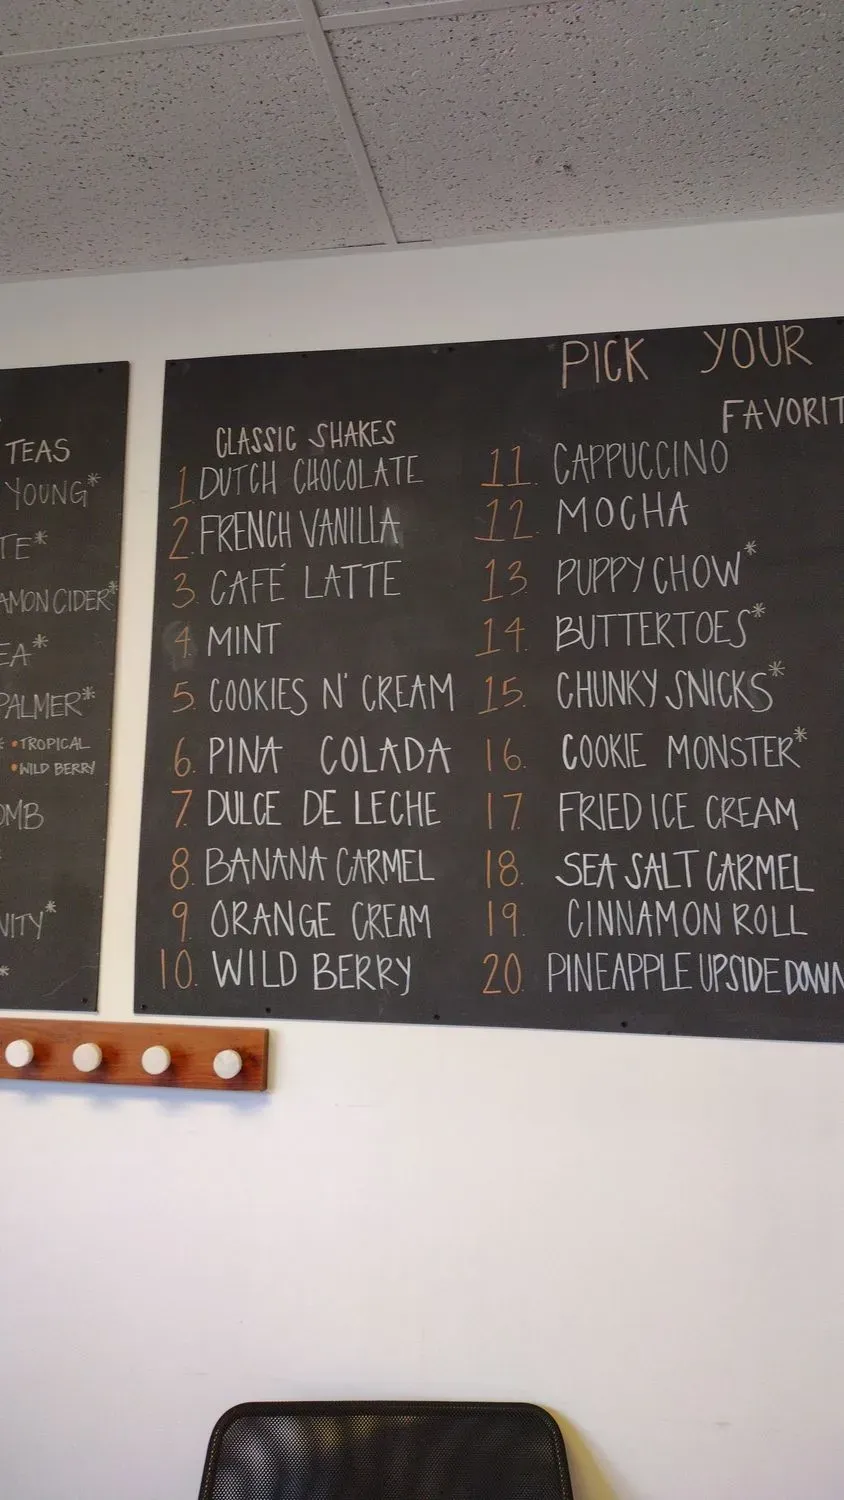 TEAS
YOUNG*
AMON CIDER*
PALMER*
• TROPICAL
• WILD BERRY
PICK YOUR
FAVORIT
CLASSIC SHAKES
1. DUTCH CHOCOLATE
2. FRENCH VANILLA
3. CAFÉ LATTE
4. MINT
5. COOKIES N' CREAM
6. PINA COLADA
7. DULCE DE LECHE
8. BANANA CARMEL
9. ORANGE CREAM
10. WILD BERRY
11. CAPPUCCINO
12. MOCHA
13. PUPPY CHOW*
14. BUTTERTOES*
15. CHUNKY SNICKS*
16. COOKIE MONSTER*
17. FRIED ICE CREAM
18. SEA SALT CARMEL
19. CINNAMON ROLL
20. PINEAPPLE UPSIDE DOWN